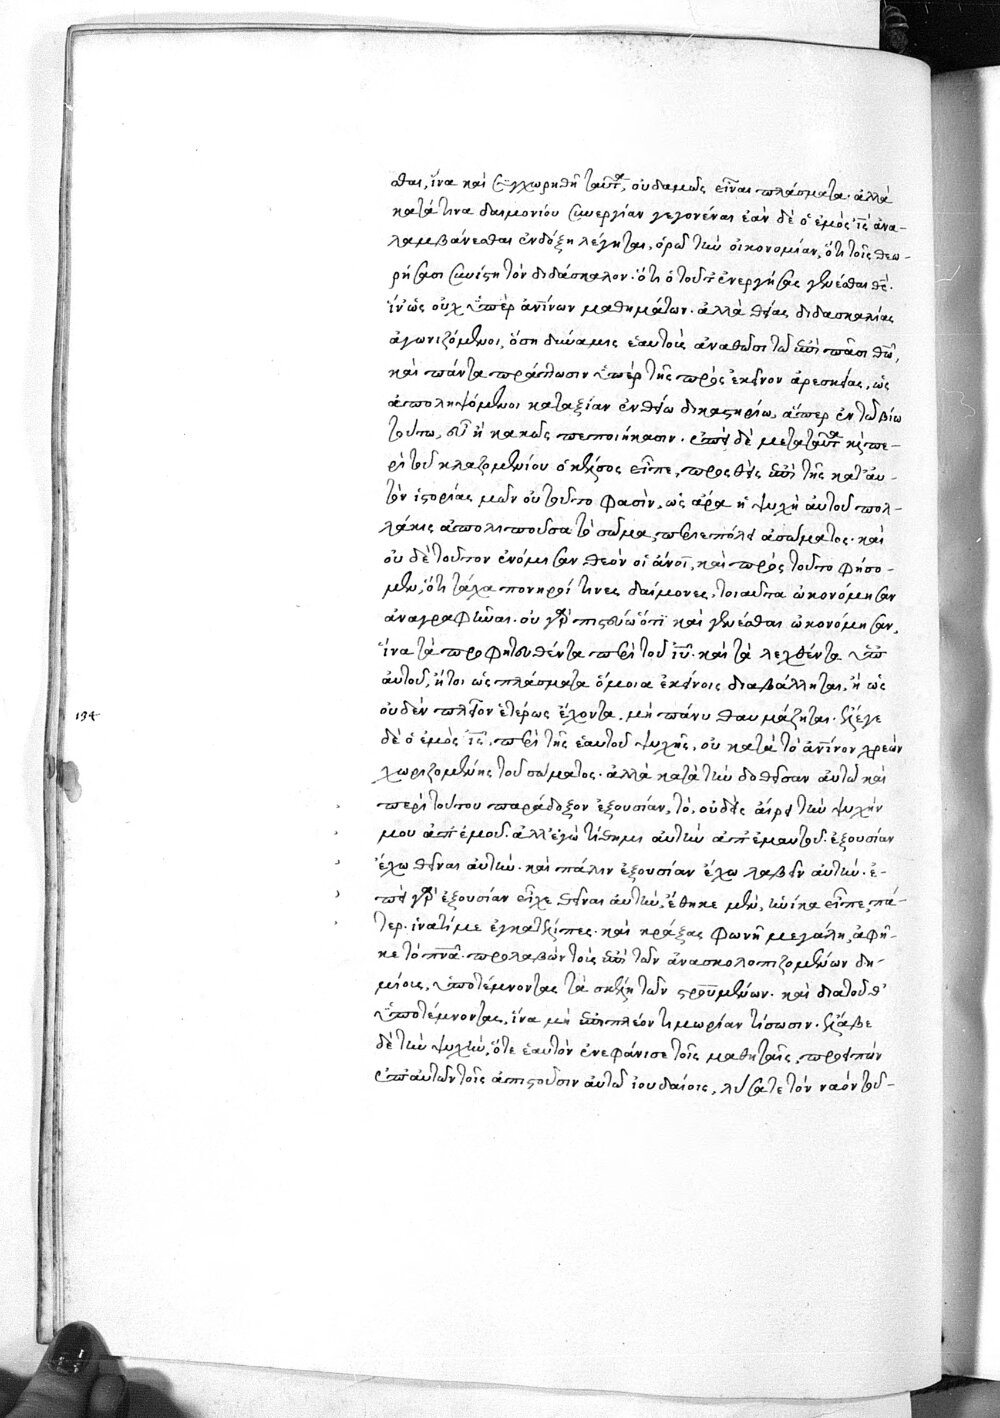 θαι, ἵνα καὶ συγχωρηθῇ ταῦτα, οὐδαμῶς εἶναι πλάσματα· ἀλλὰ
κατά τινα δαιμονίου συνεργίαν γεγονέναι ἐὰν δὲ ὁ ἐμὸς ἰς ἀνα-
λαμβάνεσθαι ἐν δόξῃ λέγηται, ὁρῶ τὴν οἰκονομίαν, ὅτι τοῖς θεω-
ρήσασι συνίστη τὸν διδάσκαλον· ὅτι ὁ τοῦτ' ἐνεργήσας γενέσθαι θς·
ἵν' ὡς οὐχ ὑπὲρ ἀνίνων μαθημάτων· ἀλλὰ θείας διδασκαλίας
ἀγωνιζόμενοι, ὅση δύναμις ἑαυτοὺς ἀναθῶσι τῶ ἐπὶ πᾶσι θῶ,
καὶ πάντα πράττωσιν ὑπὲρ τῆς πρὸς ἐκεῖνον ἀρεσκείας, ὡς
ἀποληψόμενοι κατ' ἀξίαν ἐν θείω δικαστηρίω, ἅπερ ἐν τῶ βίω
τούτω, εὖ ἢ κακῶς πεποιήκασιν· ἐπεὶ δὲ μετὰ ταῦτα κ περ-
ὶ τοῦ κλαζομενίου ὁ κέλσος εἶπε, προσθεὶς ἐπὶ τῆς κατ' αὐ-
τὸν ἱστορίας μῶν οὐ τοῦτό φασιν, ὡς ἄρα ἡ ψυχὴ αὐτοῦ πολ-
λάκις ἀπολιποῦσα τὸ σῶμα, περιεπόλει ἀσώματος· καὶ
οὐδὲ τοῦτον ἐνόμισαν θεὸν οἱ ἄνοι, καὶ πρὸς τοῦτο φήσο-
μεν, ὅτι τάχα πονηροί τινες δαίμονες, τοιαῦτα ὠκονόμησαν
ἀναγραφῆναι· οὐ γὰρ πιστεύω ὅτι καὶ γενέσθαι ὠκονόμησαν,
ἵνα τὰ προφητευθέντα περὶ τοῦ ἰυ· καὶ τὰ λεχθέντα ὑπ'
αὐτοῦ, ἤτοι ὡς πλάσματα ὅμοια ἐκείνοις διαβάλληται, ἢ ὡς
οὐδὲν πλεῖον ἑτέρως ἔχοντα, μὴ πάνυ θαυμάζηται· ἔλεγε
δὲ ὁ ἐμὸς ἰς, περὶ τῆς ἑαυτοῦ ψυχῆς, οὐ κατὰ τὸ ἀνινον χρεὼν
χωριζομένης τοῦ σώματος· ἀλλὰ κατὰ τὴν δοθεῖσαν αὐτῶ καὶ
περὶ τούτου παράδοξον ἐξουσίαν, τό, οὐδεὶς αἴρει τὴν ψυχήν
μου ἀπ' ἐμοῦ· ἀλλ' ἐγὼ τίθημι αὐτὴν ἀπ' ἐμαυτοῦ· ἐξουσίαν
ἔχω θεῖναι αὐτήν· καὶ πάλιν ἐξουσίαν ἔχω λαβεῖν αὐτήν· ἐ-
πεὶ γὰρ ἐξουσίαν εἶχε θεῖναι αὐτήν, ἔθηκε μέν, ἡνίκα εἶπε, πά-
τερ· ἱνατί με ἐγκατέλιπες· καὶ κράξας φωνῇ μεγάλῃ, ἀφῆ-
κε τὸ πνα· προλαβὼν τοὺς ἐπὶ τῶν ἀνασκολοπιζομένων δη-
μίους, ὑποτέμνοντας τὰ σκέλη τῶν σρουμένων· καὶ διὰ τοῦθ'
ὑποτέμνοντας, ἵνα μὴ ἐπὶ πλέον τιμωρίαν τίσωσιν· ἔλαβε
δὲ τὴν ψυχήν, ὅτε ἑαυτὸν ἐνεφάνισε τοῖς μαθηταῖς, προειπὼν
ἐπ' αὐτῶν τοῖς ἀπιστοῦσιν αὐτῶ ἰουδαίοις, λύσατε τὸν ναὸν τοῦ-
194